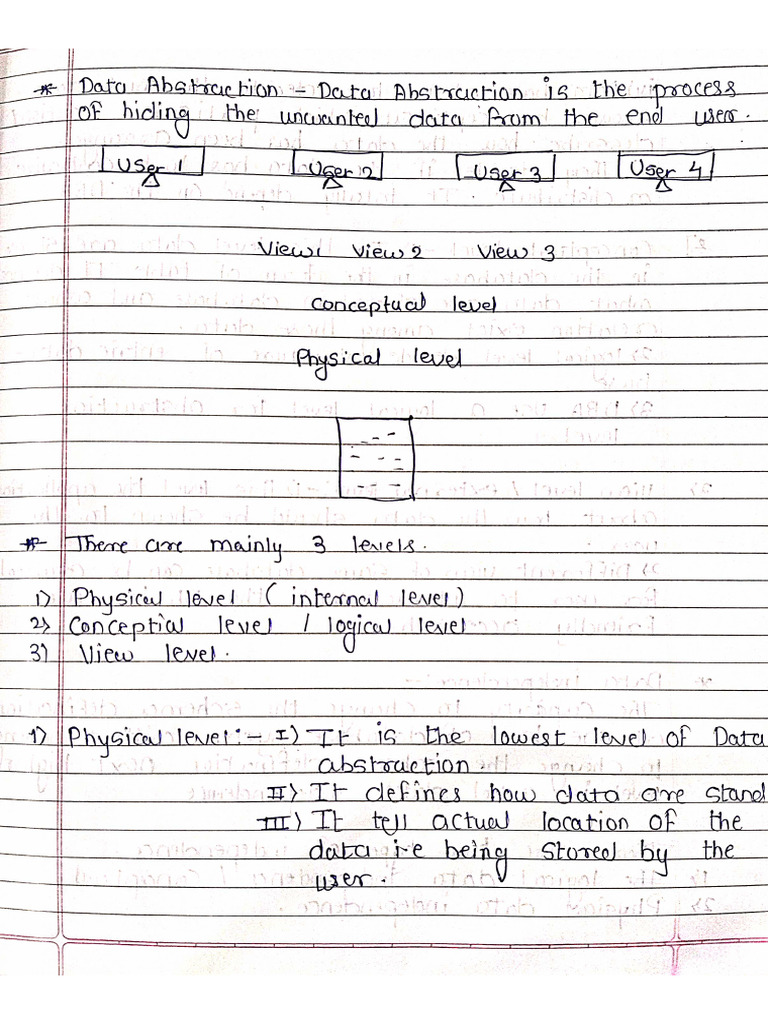 * Data Abstraction - Data Abstraction is the process
of hiding the unwanted data from the end user.
User 1 User 2 User 3 User 4
View 1 View 2 View 3
Conceptual level
Physical level
* There are mainly 3 levels.
1) Physical level ( internal level)
2) Conceptial level / logical level
3) View level.
1) Physical level:- I) It is the lowest level of Data
abstraction.
II) It defines how data are stand
III) It tell actual location of the
data i.e being stored by the
user.